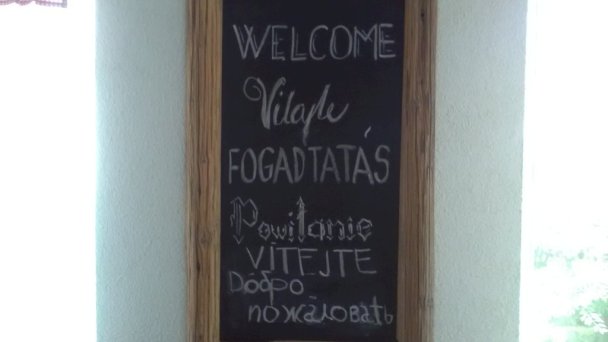 WELCOME
Vitajte
FOGADTATÁS
Powitanie
VÍTEJTE
Добро
пожаловать